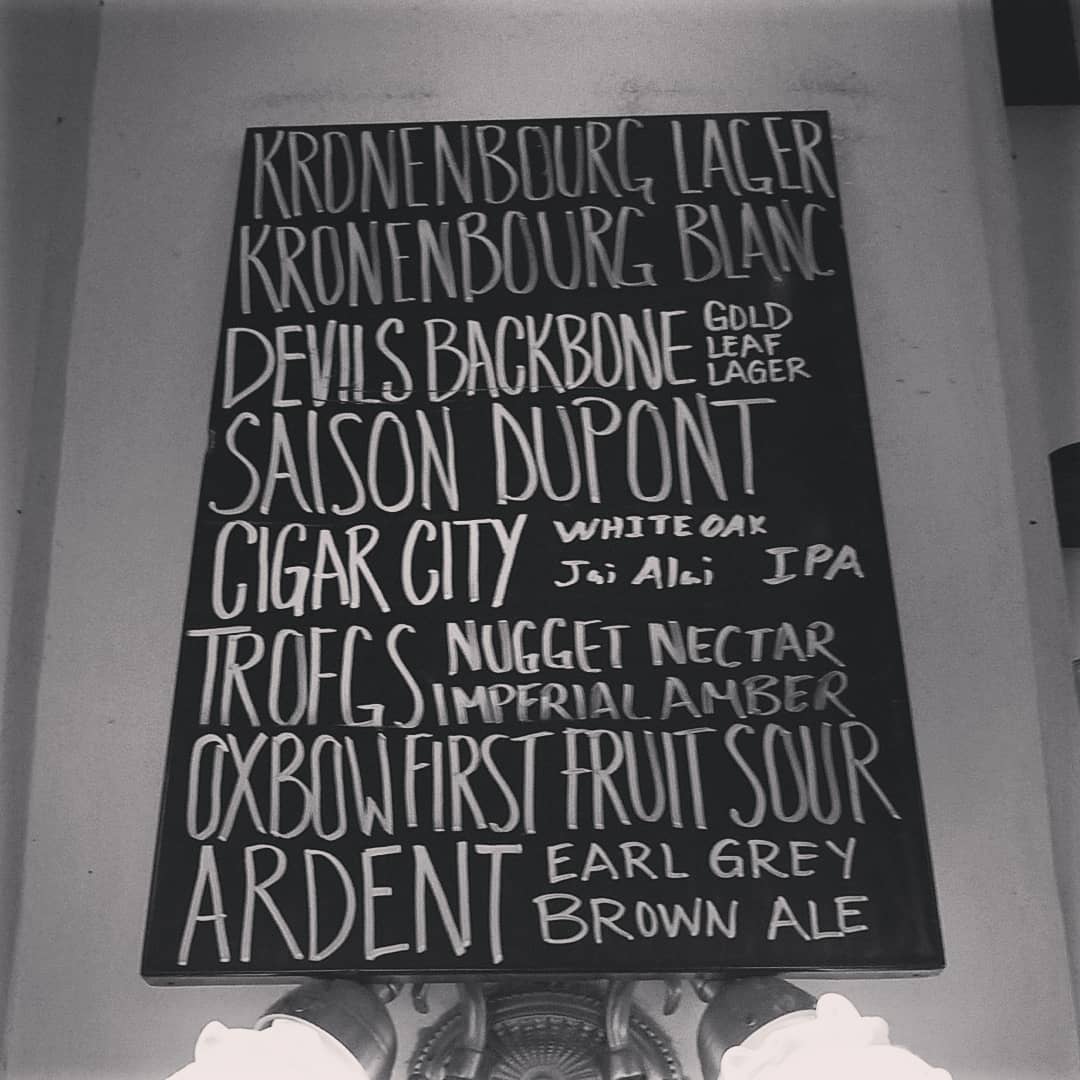 KRONENBOURG LAGER
KRONENBOURG BLANC
DEVILS BACKBONE GOLD
LEAF
LAGER
SAISON DUPONT
CIGAR CITY WHITE OAK
Jai Alai IPA
TROEGS NUGGET NECTAR
IMPERIAL AMBER
OXBOW FIRST FRUIT SOUR
ARDENT EARL GREY
BROWN ALE